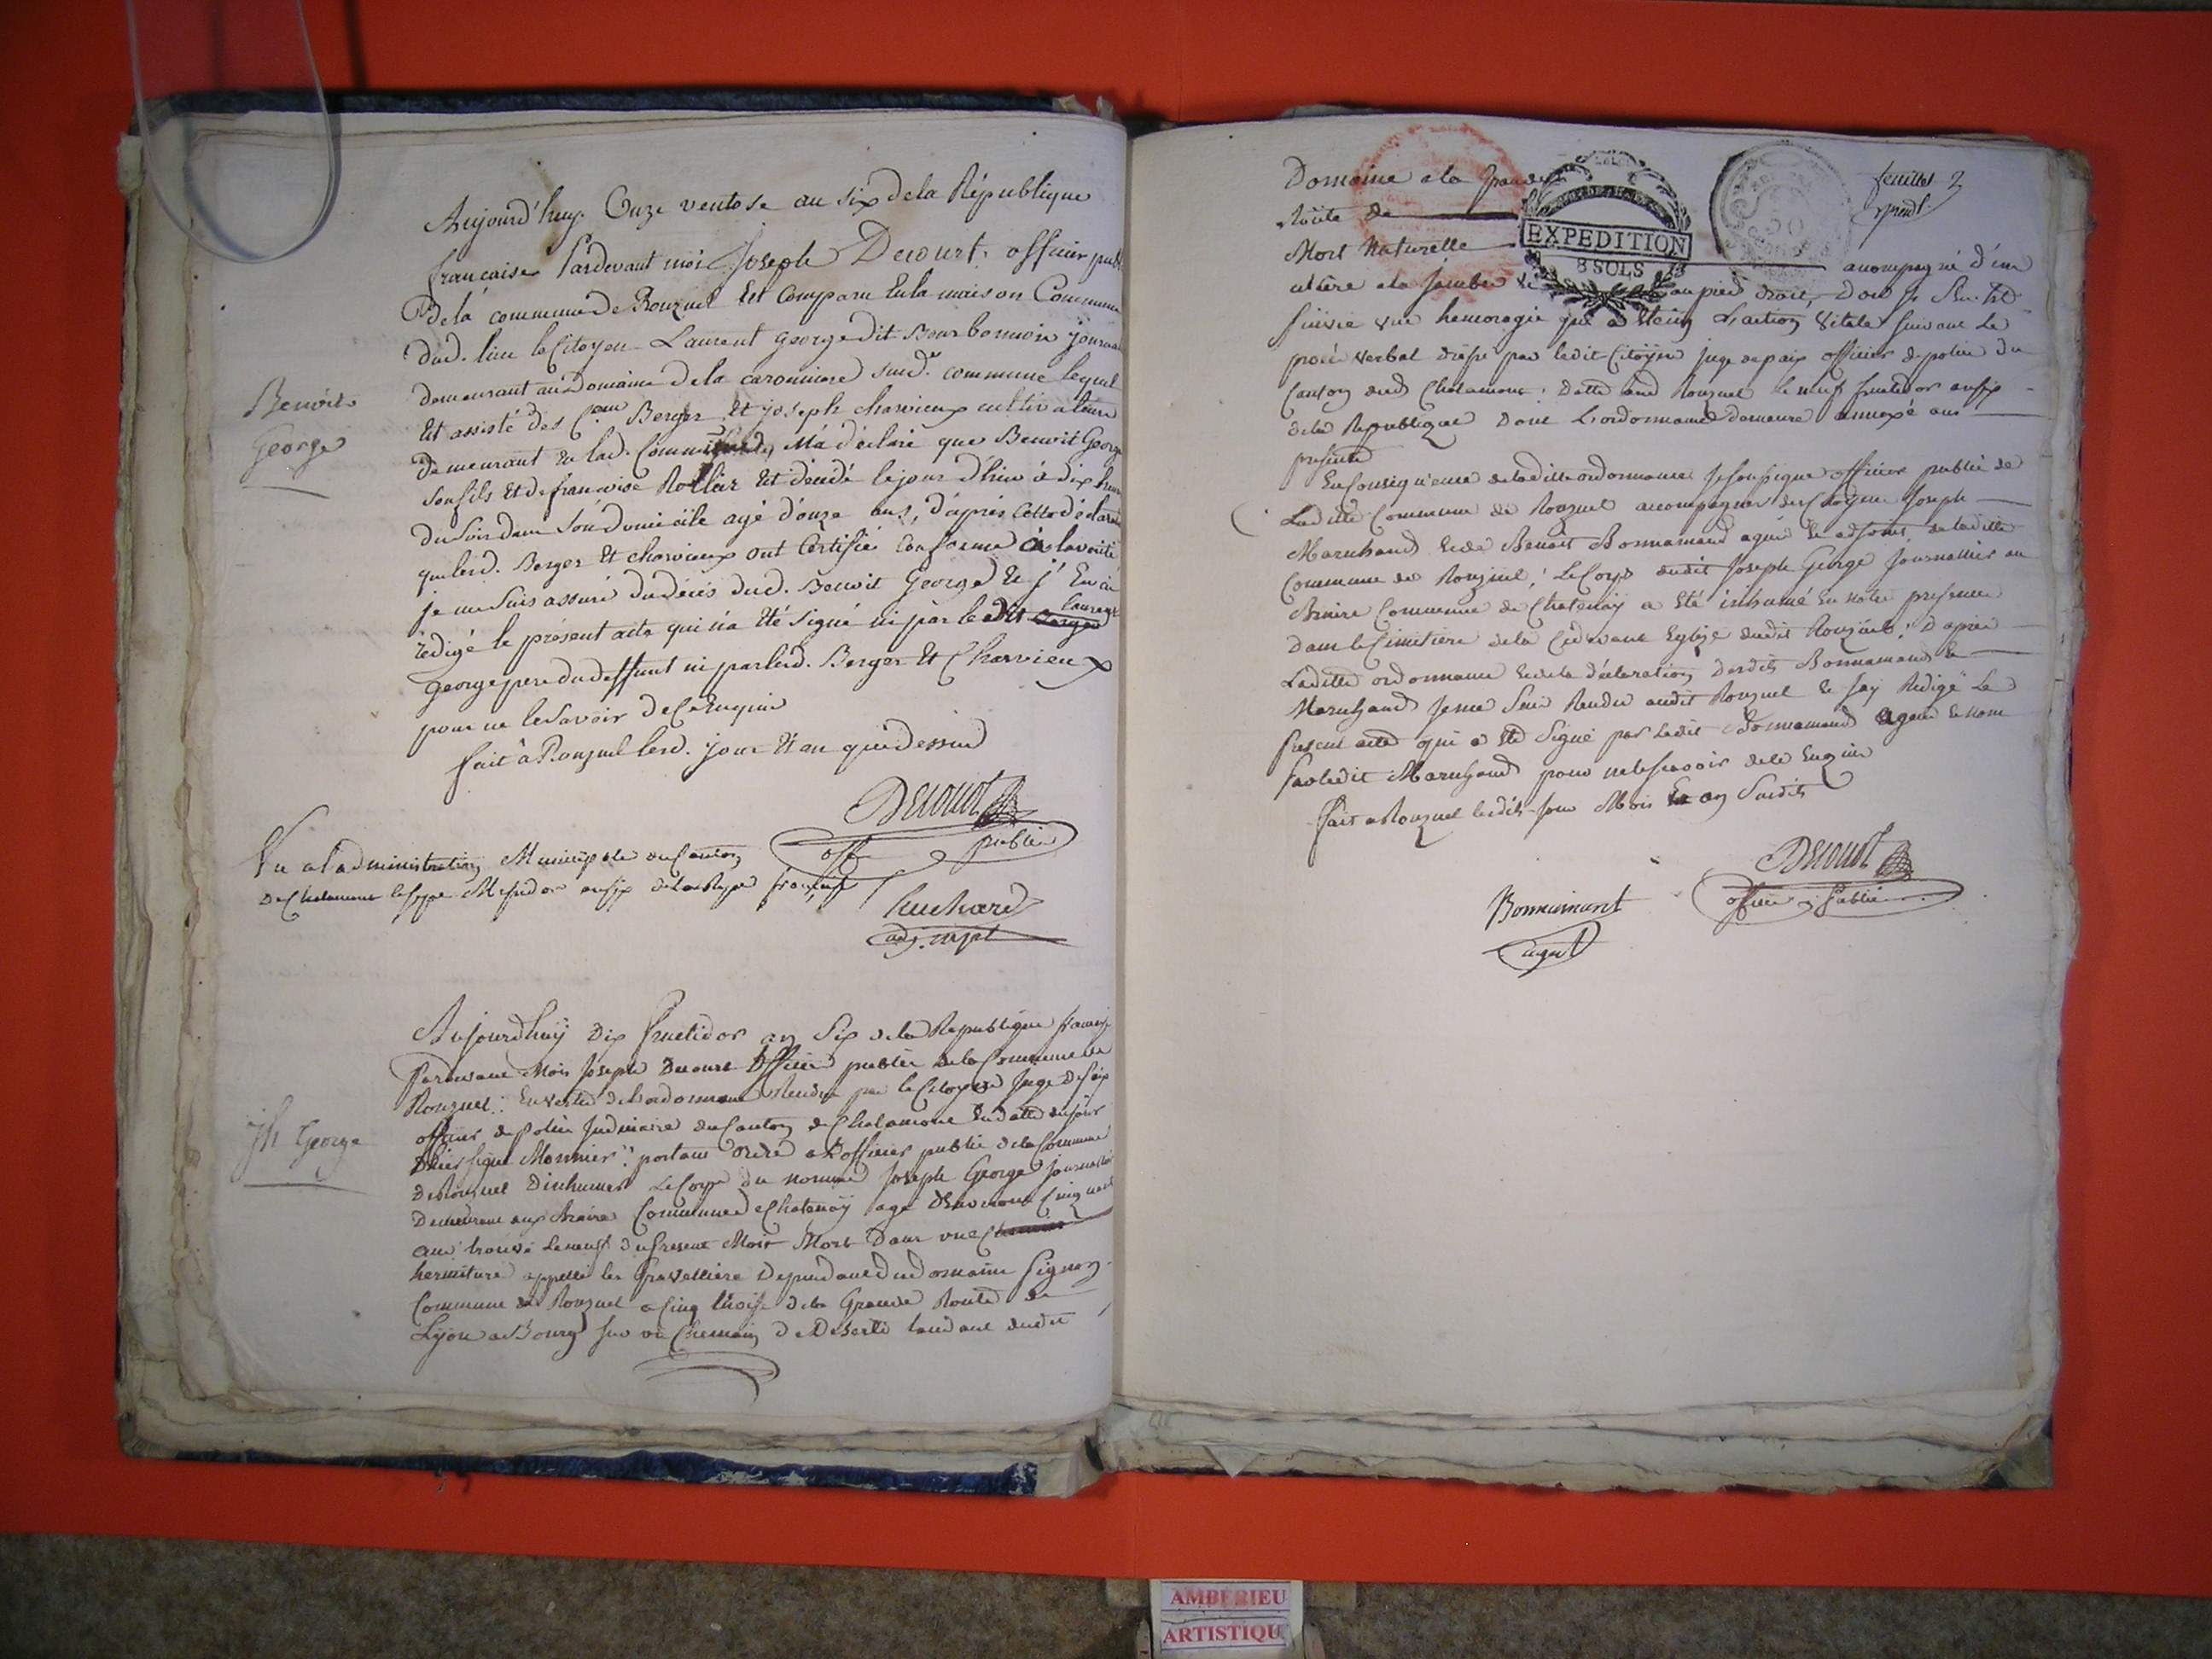 Aujourd'huy. Onze ventose an six de la République
française Pardevant moi Joseph Decourt. officier publ
de la commune de Ronzuel Est Comparu En la maison Commune
dud. lieu le Citoyen Laurent George dit Bourbonnoin journa
demeurant au Domaine de la caronniere sud. commune lequel
Benoit
George
Et assisté des Berger Et joseph charvieux cultivateurs
demeurant en lad. Commune, M'a déclaré que Benoit George
son fils Et de francoise Rollin Est décédé le jour d'hier à dix heur
du Soir dans Son Domicile agé d'onze ans, d'après cette déclarat
que lesd. Berger Et charvieux ont Certifié Conforme à la vérité
je me suis assuré du décès dud. Benoit George Et j'En ai
rédigé le présent acte qui n'a Eté signé ni par le dit Laurent
George pere du deffunt ni par lesd. Berger Et Charvieux
pour ne le Savoir de Ce Enquis
fait à Ronzuel lesd. jour Et an que dessus
Decourt
off public
Vu a l'administration Municipale du Canton
De Chalamont le Messidor an six de la Rep française
adj. mpl
Aujourdhuy Dix fructidor an Six de la Republique françoise
Pardevant Moi Joseph Decourt Officier public de la Commune de
Ronzuel: En vertu de Lordonnance Rendue par le Citoyen Juge de paix
officier de police Judiciaire du Canton de Chalamont En datte du jour
Dhier signé Monnier: portant ordre a L'officier public de la Commune
Jh George
de Ronzuel Dinhumer Le Corps du nommé Joseph George journallier
Demeurant aux Commune de Chatenay agé Denviron Cinquante
ans trouvé Le neuf du present Mois Mort Dans une
hermiture appellé les Gravelliere Dependant du Domaine Pignon
Commune de Ronzuel a Cinq thoise de la Grande Route de
Lyon a Bourg sur un Chemin de Deserte tendant dudit
feuillet 2
Domaine a la Grande
Route de
EXPEDITION
8 SOLS
Mort Naturelle acompagné d'un
ulcère a la Jambe Et au pied droit, Dou Il S'en Est
suivie une hemoragie qui a Eteint L'action Vitale suivant Le
procè verbal dressé par ledit Citoyen juge de paix officier de police du
Canton dud Chalamont: Datté aud Ronzuel le neuf fructidor an six
de la Republique Dont L'ordonnance demeure annexé au
present
En Conséquence de la ditte ordonnance Je soussigné officier public de
Laditte Commune de Ronzuel accompagner des Citoyens Joseph
Maruhand Et de Benoit Bonnamand agent Et adjoint de laditte
Commune de Ronzuel: Le Corps dudit Joseph George Journallier au
Commune de Chatenay a Eté inhumé En notre presence
Dans le Cimitiere de la Cidevant Eglize dudit Ronzuel: D'aprés
Laditte ordonnance Et de la déclaration Desdits Bonnamand Et
Maruhand Je me Suis Rendu audit Ronzuel Et jay Redigé Le
Present acte qui a Eté Signé par Ledit Bonnamand agent Et non
Par ledit Maruhand pour ne le scavoir de ce Enquis
Fait a Ronzuel lesdits jour Mois Et an Susdits
Decourt
officier Public
Bonnamant
agent
AMBERIEU
ARTISTIQU